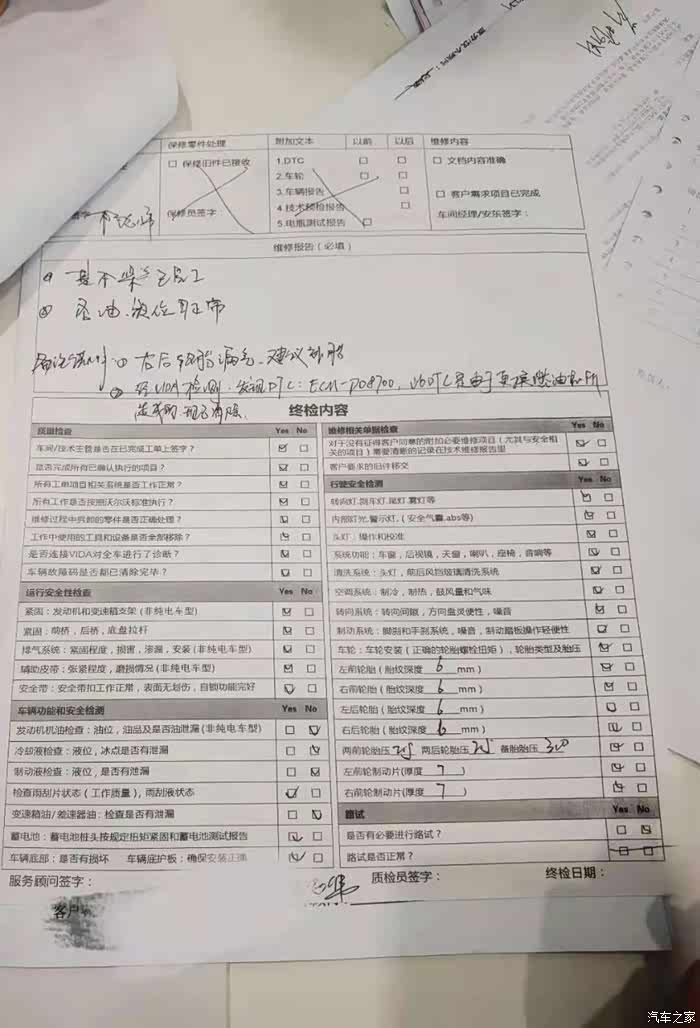 保修零件处理 附加文本 以前 以后 维修内容
□ 保修旧件已接收 1.DTC □ □ □ 文档内容准确
2.车轮 □ □
3.车辆报告 □ □ 客户需求项目已完成
保修员签字: 4.技术预检报告 □
5.电瓶测试报告 □ 车间经理/安东签字:
维修报告(必填)
② 全油、液位正常
① 右后轮胎漏气、建议补胎
② 经VIDA检测、发现DTC:ECM-P08700,
终检内容
质量检查 Yes No
车间/技术主管是否在已完成工单上签字? ☑ □
是否完成所有已确认执行的项目? ☑ □
所有工单项目相关系统是否工作正常? ☑ □
所有工作是否按照沃尔沃标准执行? ☑ □
维修过程中拆卸的零件是否正确处理? ☑ □
工作中使用的工具和设备是否全部移除? ☑ □
是否连接VIDA对全车进行了诊断? ☑ □
车辆故障码是否都已清除完毕? ☑ □
运行安全性检查 Yes No
紧固:发动机和变速箱支架(非纯电车型) ☑ □
紧固:前桥,后桥,底盘拉杆 ☑ □
排气系统:紧固程度,损害,渗漏,安装(非纯电车型) ☑ □
辅助皮带:张紧程度,磨损情况(非纯电车型) ☑ □
安全带:安全带扣工作正常,表面无划伤,自锁功能完好 ☑ □
车辆功能和安全检查 Yes No
发动机机油检查:油位,油品及是否油泄漏(非纯电车型) □ ☑
冷却液检查:液位,冰点是否有泄漏 □ ☑
制动液检查:液位,是否有泄漏 □ ☑
检查雨刮片状态(工作质量),雨刮液状态 ☑ □
变速箱油/差速器油:检查是否有泄漏 □ ☑
蓄电池:蓄电池桩头按规定扭矩紧固和蓄电池测试报告 ☑ □
车辆底部:是否有损坏 车辆底护板:确保安装正确 ☑ □
维修相关单据检查 Yes No
对于没有征得客户同意的附加必要维修项目(尤其与安全相
关的项目)需要清晰的记录在技术维修报告里 ☑ □
客户要求的旧件移交 ☑ □
行驶安全检测 Yes No
转向灯.刹车灯.尾灯.雾灯等 ☑ □
内部灯光.警示灯,(安全气囊.abs等) ☑ □
头灯:操作和校准 ☑ □
系统功能:车窗,后视镜,天窗,喇叭,座椅,音响等 ☑ □
清洗系统:头灯,前后风挡玻璃清洗系统 ☑ □
空调系统:制冷,制热,鼓风量和气味 ☑ □
转向系统:转向间隙,方向盘灵便性,噪音 ☑ □
制动系统:脚刹和手刹系统,噪音,制动踏板操作轻便性 ☑ □
车轮:车轮安装(正确的轮胎螺栓扭矩),轮胎类型及胎压 ☑ □
左前轮胎(胎纹深度 6 mm) ☑ □
右前轮胎(胎纹深度 6 mm) ☑ □
左后轮胎(胎纹深度 6 mm) ☑ □
右后轮胎(胎纹深度 6 mm) ☑ □
两前轮胎压 两后轮胎压 备胎胎压 ☑ □
左前轮制动片(厚度 7 ) ☑ □
右前轮制动片(厚度 7 ) ☑ □
路试 Yes No
是否有必要进行路试? □ ☑
路试是否正常? □ □
服务顾问签字: 质检员签字: 终检日期:
客户
汽车之家